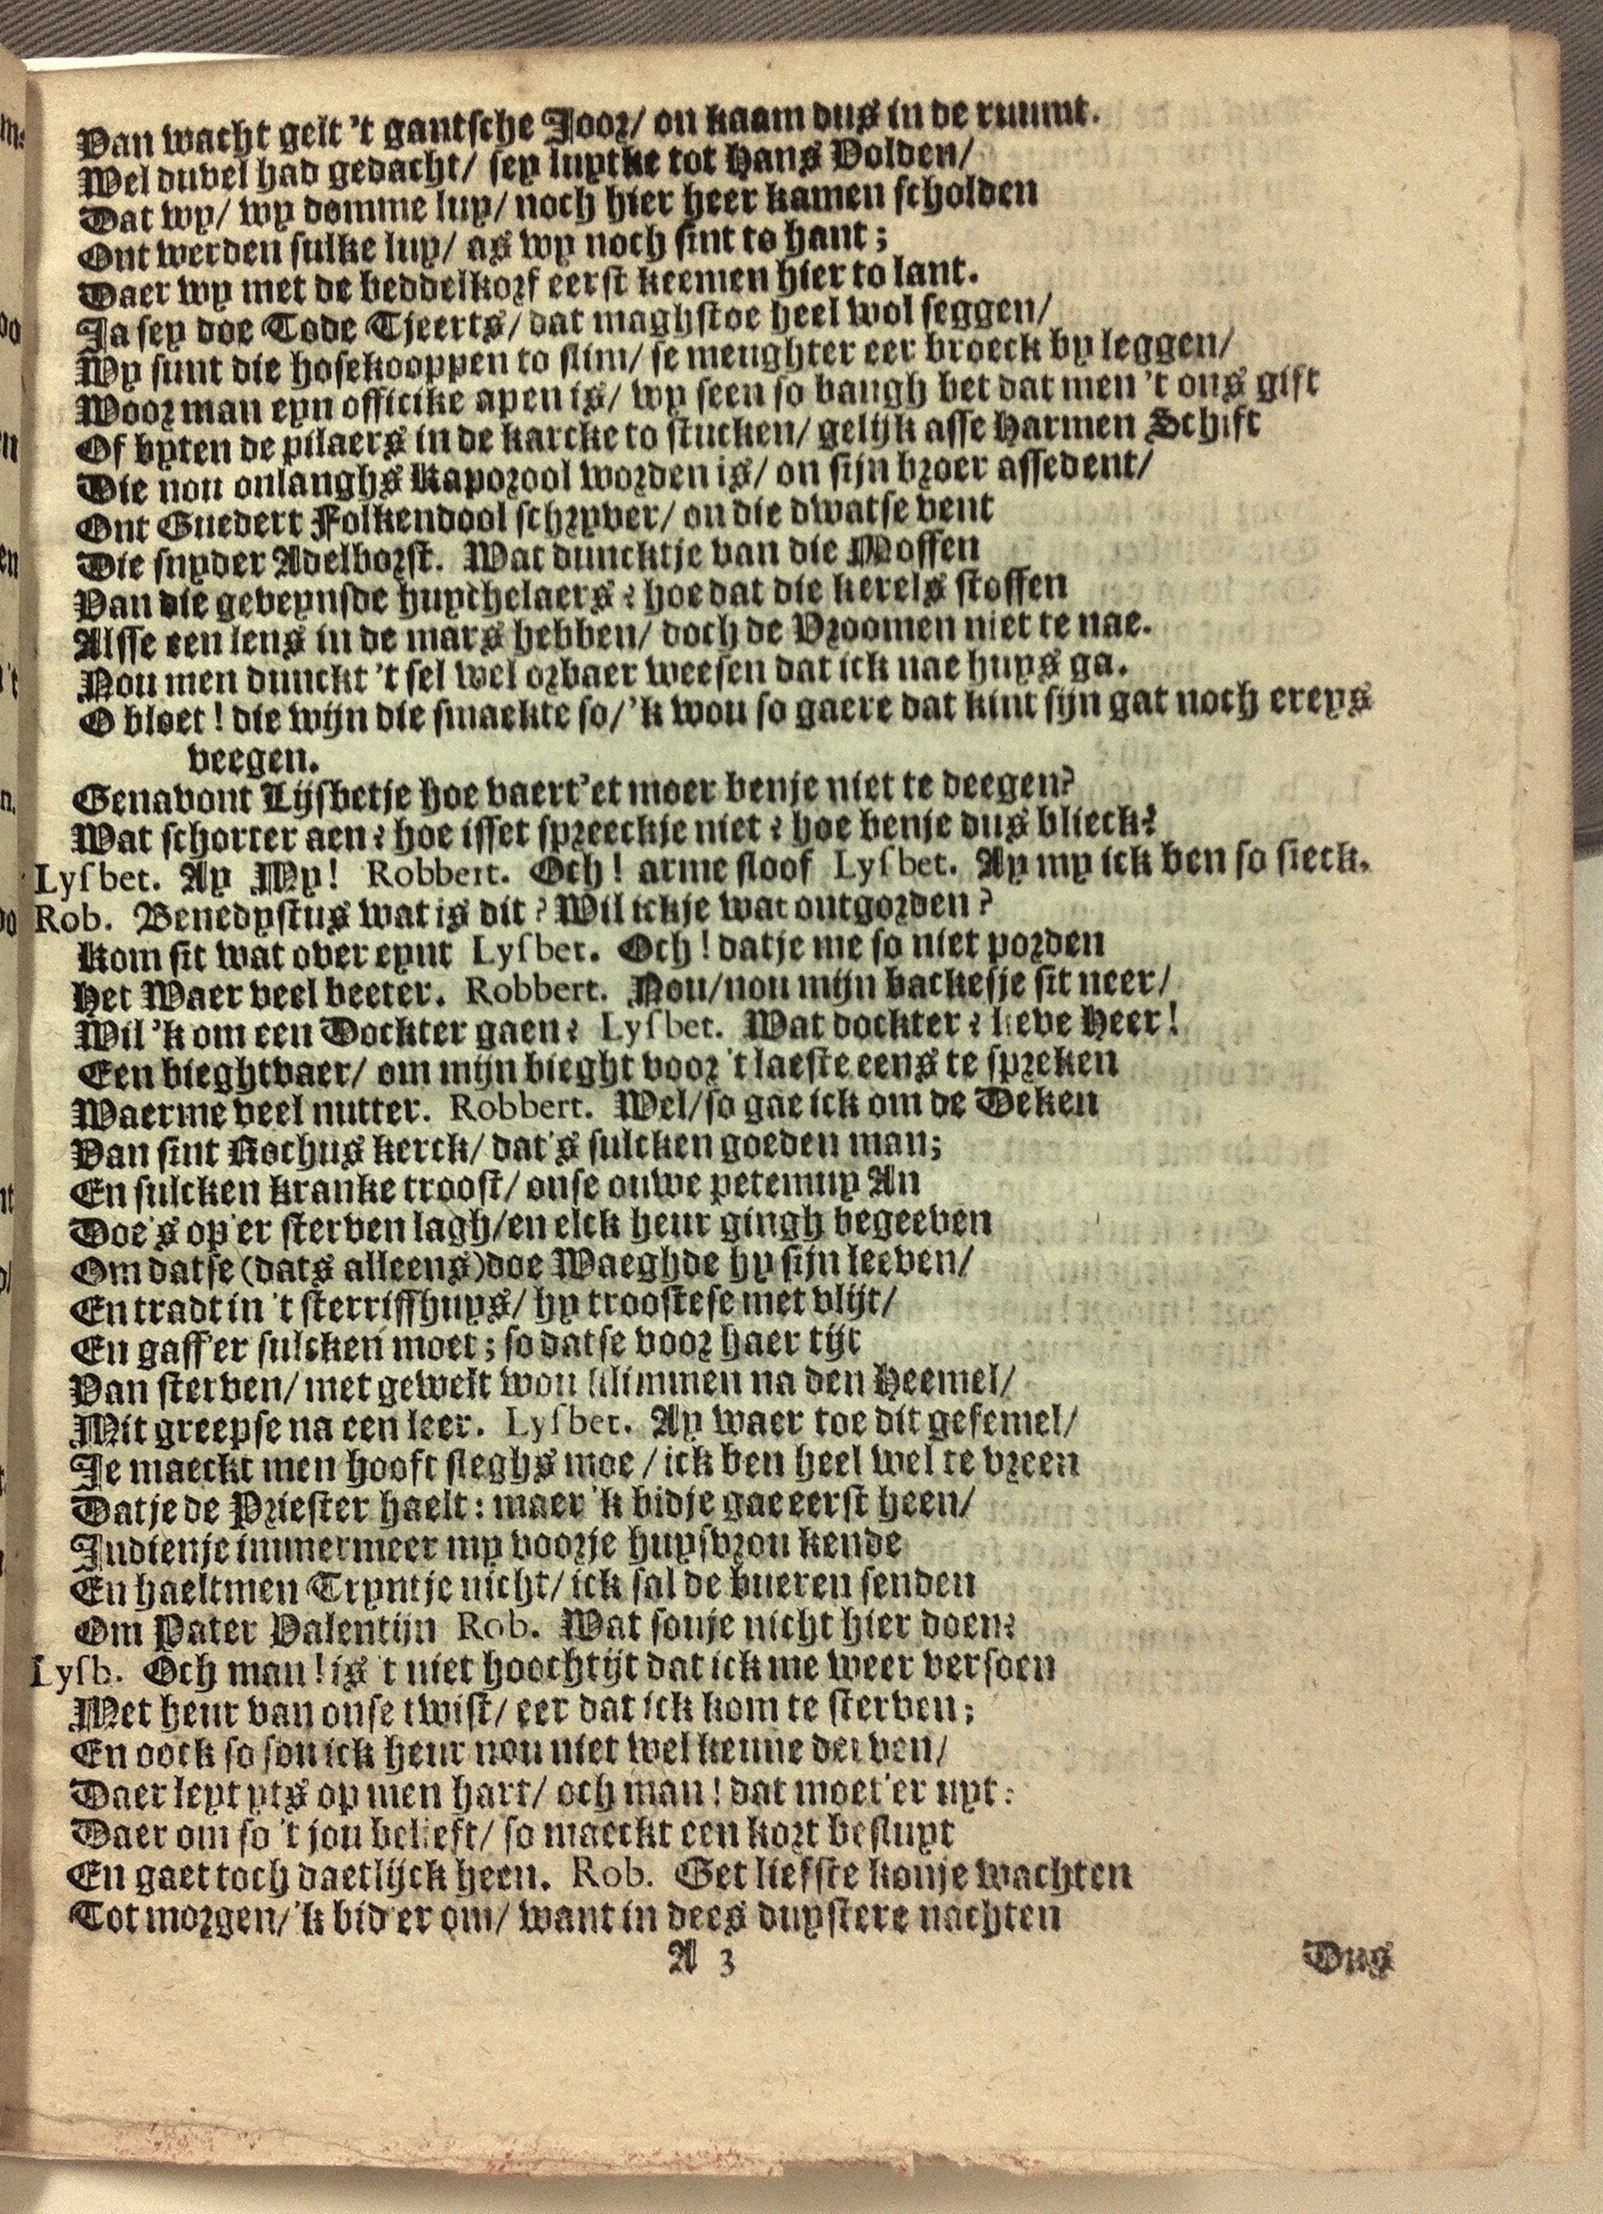 Van wacht gelt 't gantsche Joor/ on kaam dus in de ruumt.
Wel duvel had gedacht/ sey luytke tot Hans Volden/
Dat wy/ wy domme luy/ noch hier heer kamen scholden
Ont werden sulke luy/ as wy noch sint to hant;
Daer wy met de beddelkorf eerst keemen hier to lant.
Ja sey doe Tode Tjeerts/ dat maghstoe heel wol seggen/
Wy sunt die hosekooppen to slim/ se meughter eer broeck by leggen/
Woor man eyn officike apen is/ wy seen so bangh bet dat men 't ons gift
Of byten de pilaers in de karcke to stucken/ gelijk asse Harmen Schift
Die nou onlanghs Kaporool worden is/ on sijn broer assedent/
Ont Guedert Folkendool schryver/ on die dwatse vent
Die snyder Adelborst. Wat duncktje van die Moffen
Van die geveynsde huychelaers? hoe dat die kerels stoffen
Alsse een lens in de mars hebben/ doch de Vroomen niet te nae.
Nou men dunckt 't sel wel orbaer weesen dat ick nae huys ga.
O bloet! die wijn die smaekte so/ 'k wou so gaere dat kint sijn gat noch ereys
veegen.
Genavont Lijsbetje hoe vaert'et moer benje niet te deegen?
Wat schorter aen? hoe isset spreeckje niet? hoe benje dus blieck?
Lysbet. Ay My! Robbert. Och! arme sloof Lysbet. Ay my ick ben so sieck.
Rob. Benedystus wat is dit? Wil ickje wat ontgorden?
Kom sit wat over eynt Lysbet. Och! datje me so niet porden
Het Waer veel beeter. Robbert. Nou/nou mijn backesje sit neer/
Wil 'k om een Dockter gaen? Lysbet. Wat dockter? lieve Heer!
Een bieghtvaer/ om mijn bieght voor 't laeste eens te spreken
Waerme veel nutter. Robbert. Wel/so gae ick om de Deken
Van sint Rochus kerck/ dat's sulcken goeden man;
En sulcken kranke troost/ onse ouwe petemuy An
Doe's op'er sterven lagh/en elck heur gingh begeeven
Om datse (dats alleens)doe Waeghde hy sijn leeven/
En tradt in 't sterriffhuys/ hy troostese met vlijt/
En gaff'er sulcken moet; so datse voor haer tijt
Van sterven/ met gewelt wou klimmen na den Heemel/
Mit greepse na een leer. Lysbet. Ay waer toe dit gesemel/
Je maeckt men hooft sleghs moe / ick ben heel wel te vreen
Datje de Priester haelt: maer 'k bidje gae eerst heen/
Indienje immermeer my voorje huysvrou kende
En haeltmen Tryntje nicht/ ick sal de bueren senden
Om Pater Valentijn Rob. Wat souje nicht hier doen?
Lysb. Och man! is 't niet hoochtijt dat ick me weer versoen
Met heur van onse twist/ eer dat ick kom te sterven;
En oock so sou ick heur nou niet wel kenne derven/
Daer leyt yts op men hart/ och man! dat moet'er uyt:
Daer om so 't jou belieft/ so maeckt een kort besluyt
En gaet toch daetlijck heen. Rob. Get liefste konje wachten
Tot morgen/'k bid'er om/ want in dees duystere nachten
A 3
Dus